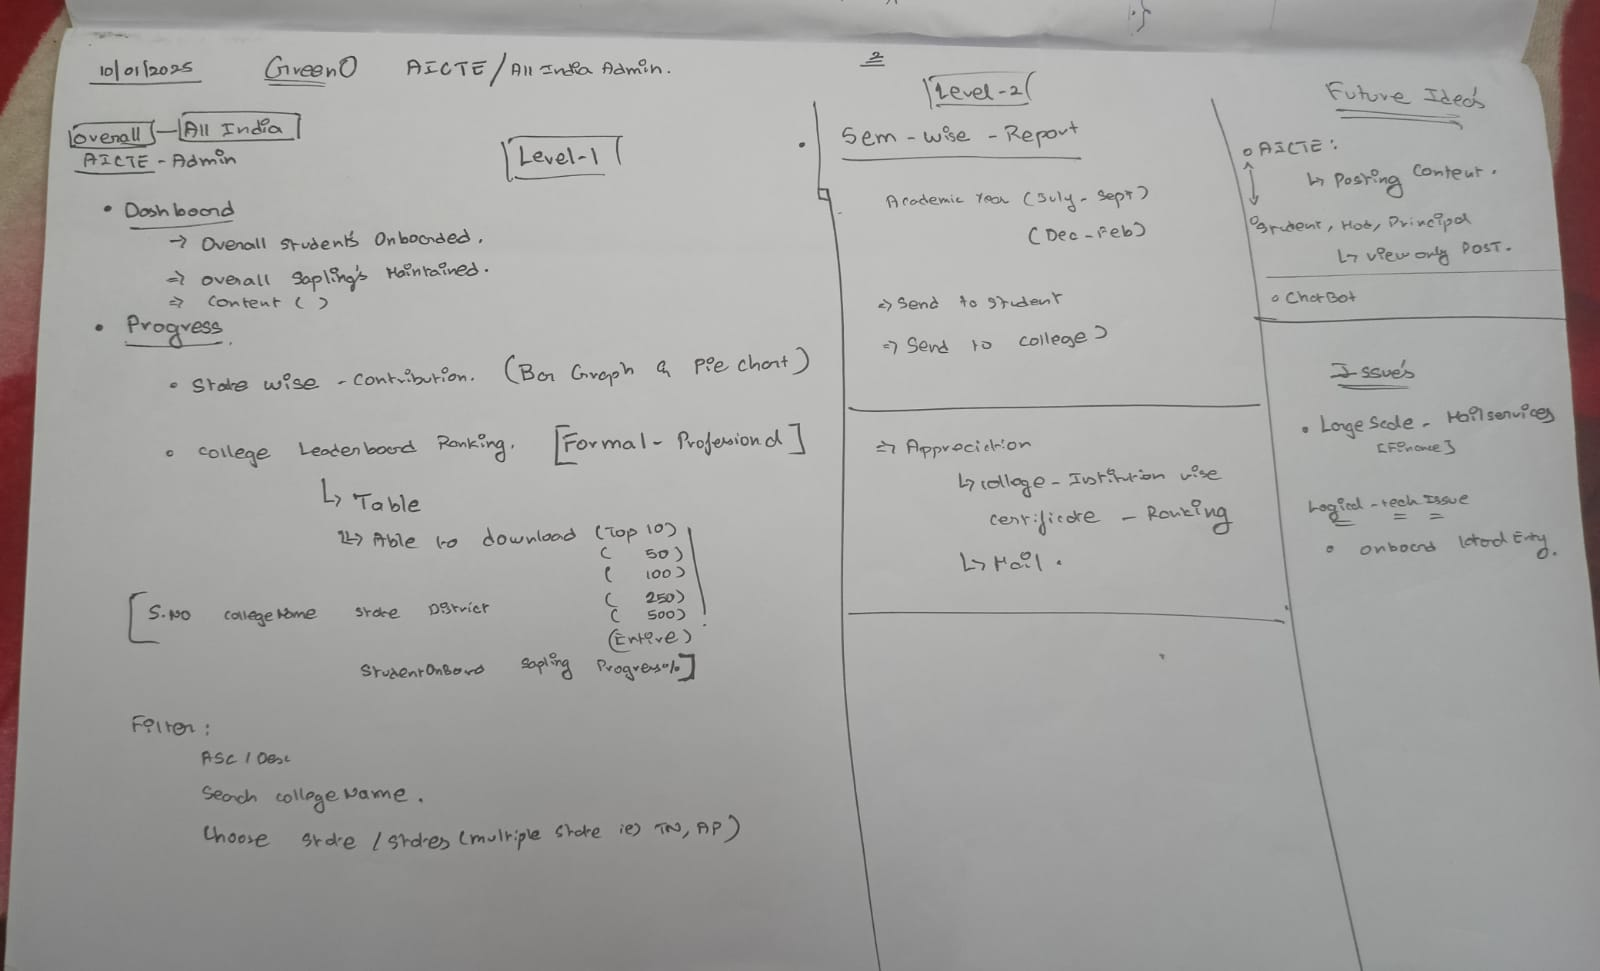 10/01/2025 GreenO AICTE/All India Admin.
2
Overall - All India
AICTE - Admin
Level-1
• Dashboard
→ Overall students Onboarded.
⇒ Overall Sapling's Maintained.
⇒ Content ( )
• Progress
• State wise - Contribution. (Bar Graph & Pie chart)
• College Leaderboard Ranking. [Formal - Professional]
↳ Table
↳ Able to download (Top 10)
( 50)
( 100)
( 250)
( 500)
(Entire)
[S.NO collegeName state District
StudentOnBoard Sapling Progress%]
Filter:
ASC / Desc
Search collegeName.
Choose state / states (multiple state ie) TN, AP)
Level-2
Sem - wise - Report
Academic Year (July - Sept)
(Dec - Feb)
⇒ Send to student
⇒ Send to college)
⇒ Appreciation
↳ college - Institution wise
certificate - Ranking
↳ Mail.
Future Idea's
○ AICTE:
↳ Posting Content.
○ Student, Hod, Principal
↳ view only POST.
○ ChatBot
Issue's
• Large Scale - Mail services
[Finance]
Logical - tech Issue
• Onboard